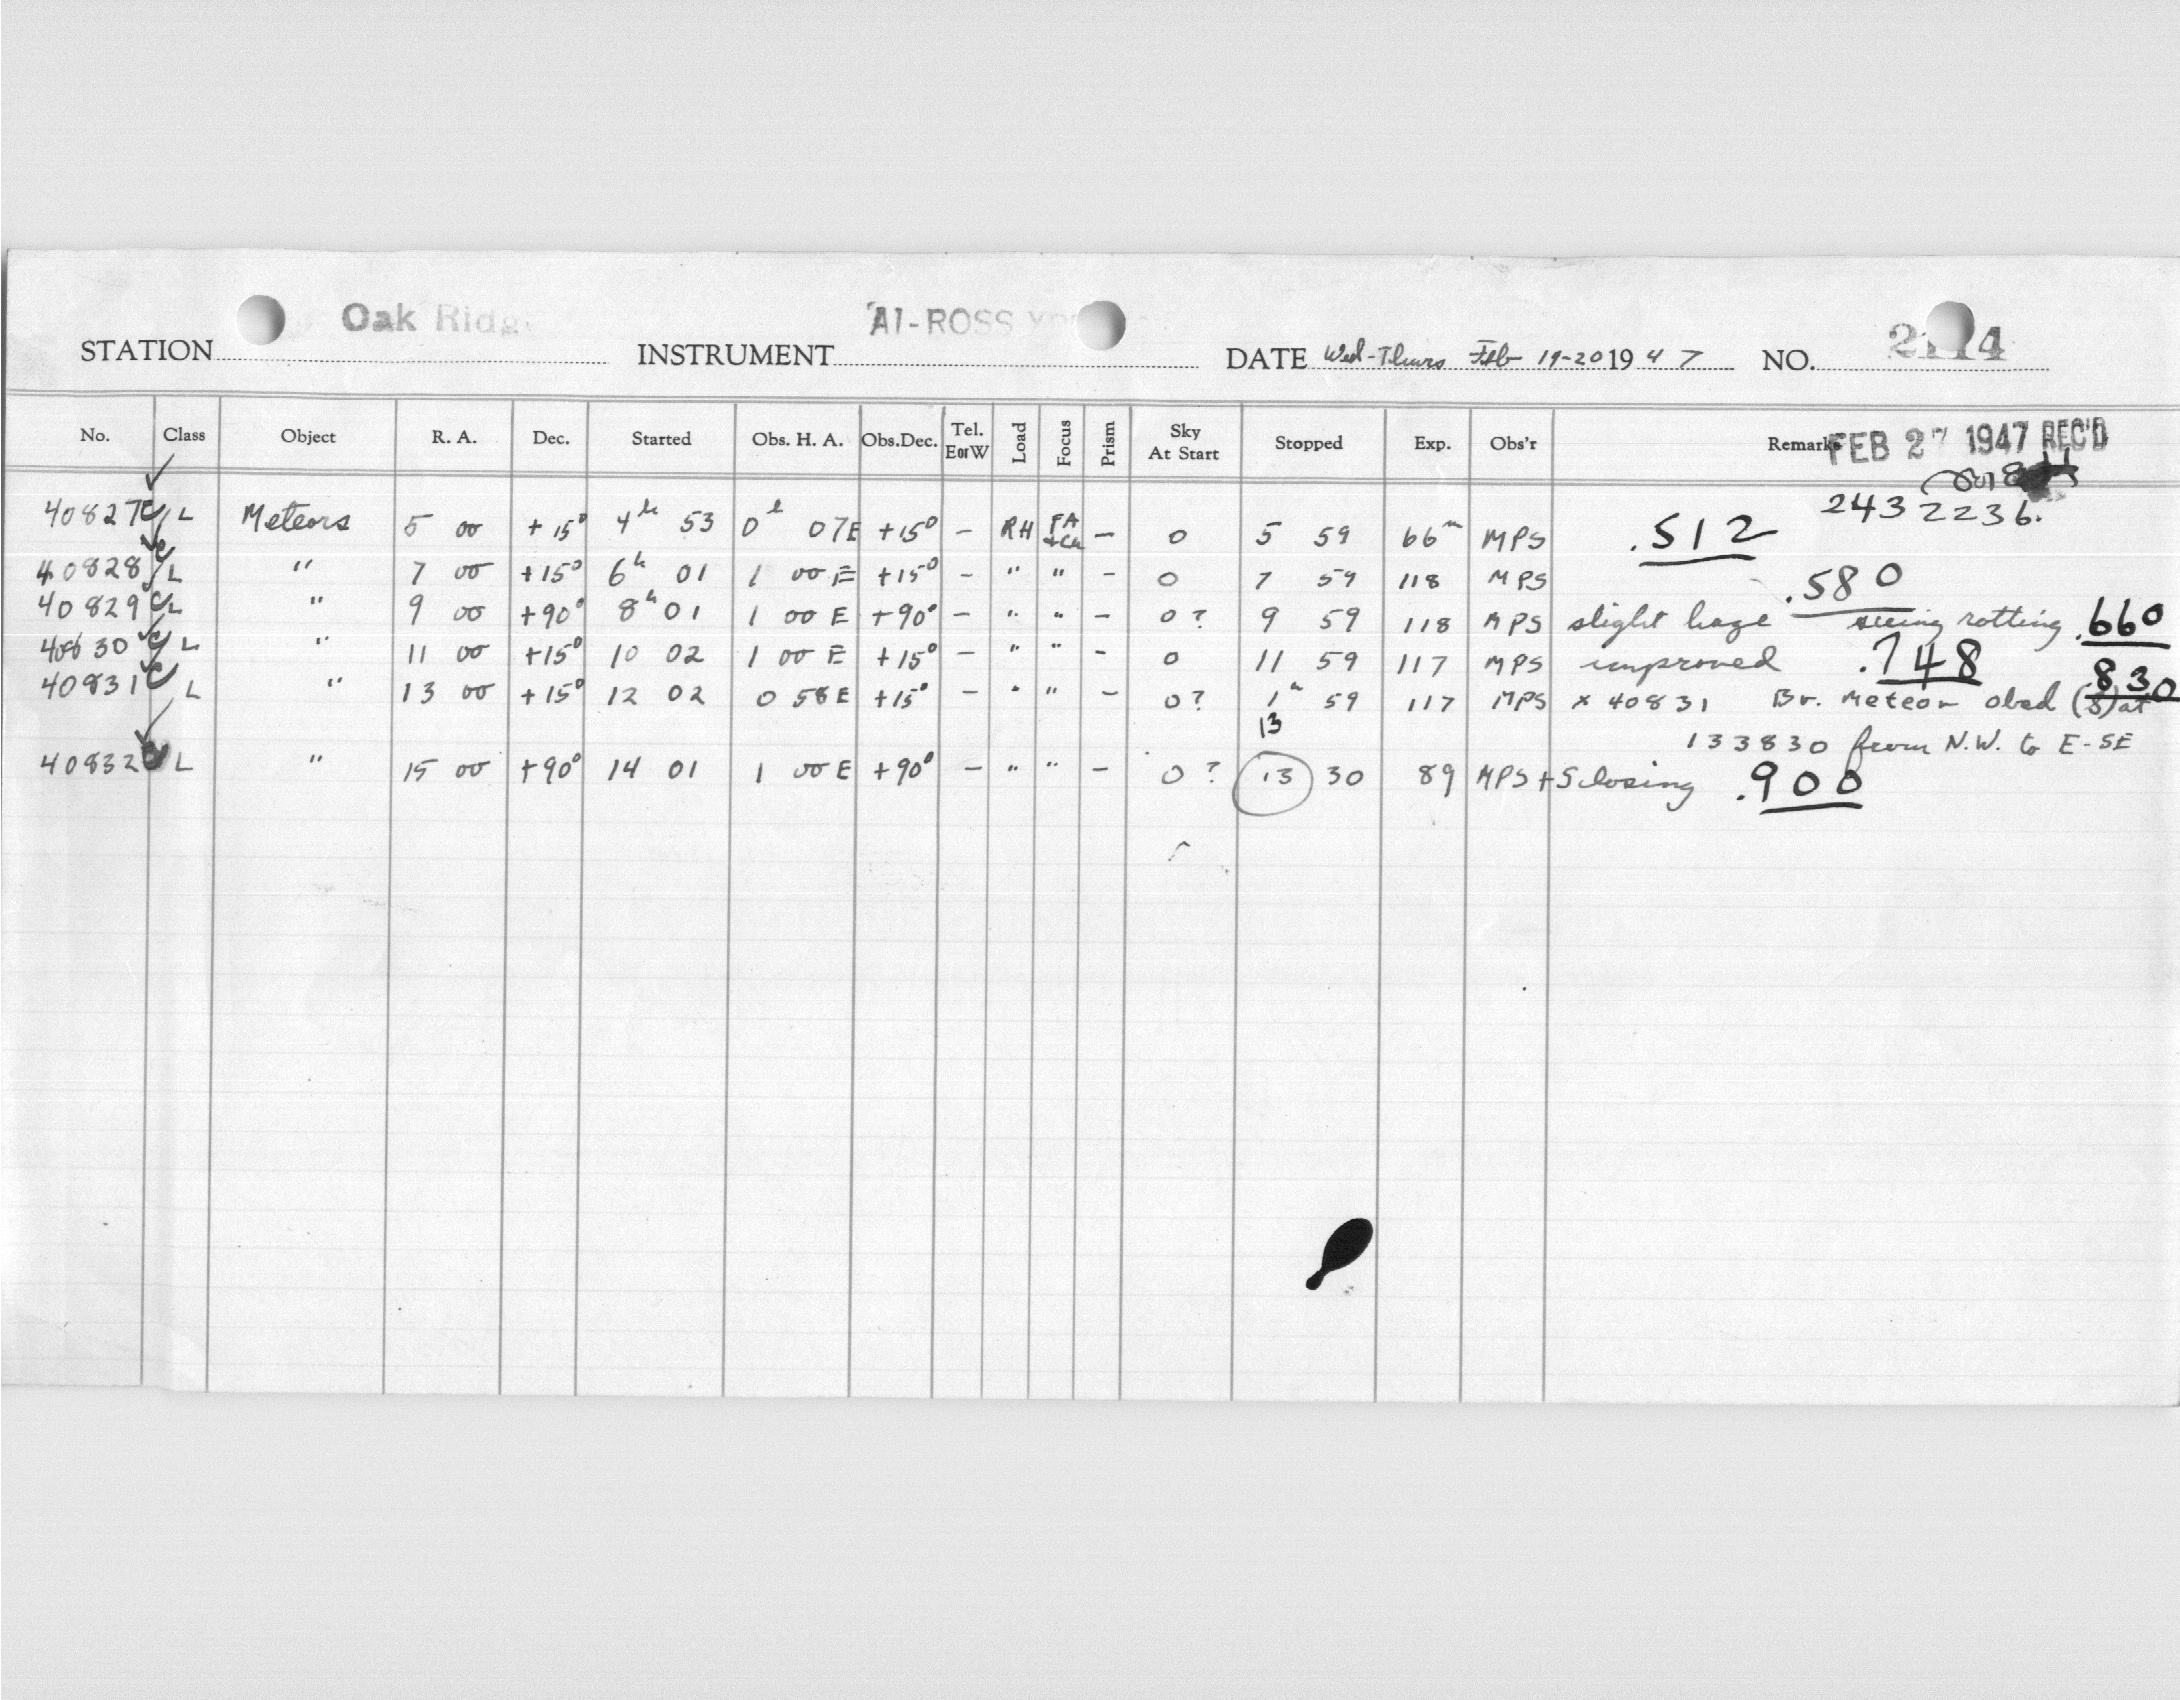 Oak Ridge AI-ROSS 2114
STATION INSTRUMENT DATE Wed-Thurs Feb 19-20 1947 NO.
No. Class Object R. A. Dec. Started Obs. H. A. Obs.Dec. Tel. EorW Load Focus Prism Sky At Start Stopped Exp. Obs'r Remarks
FEB 27 1947 REC'D
2432236.
40827 C L Meteors 5 00 +15° 4h 53 0h 07E +15° - RH FA +Cu - 0 5 59 66m MPS .512
40828 C L " 7 00 +15° 6h 01 1 00 E +15° - " " - 0 7 59 118 MPS .580
40829 C L " 9 00 +90° 8h 01 1 00 E +90° - " " - 0? 9 59 118 MPS slight haze seeing rotting .660
40830 C L " 11 00 +15° 10 02 1 00 E +15° - " " - 0 11 59 117 MPS improved .748
40831 C L " 13 00 +15° 12 02 0 58E +15° - " " - 0? 1h 59 117 MPS x 40831 Br. Meteor obsd (S) at .830
13 133830 from N.W. to E-SE
40832 C L " 15 00 +90° 14 01 1 00 E +90° - " " - 0? 13 30 89 MPS+S closing .900